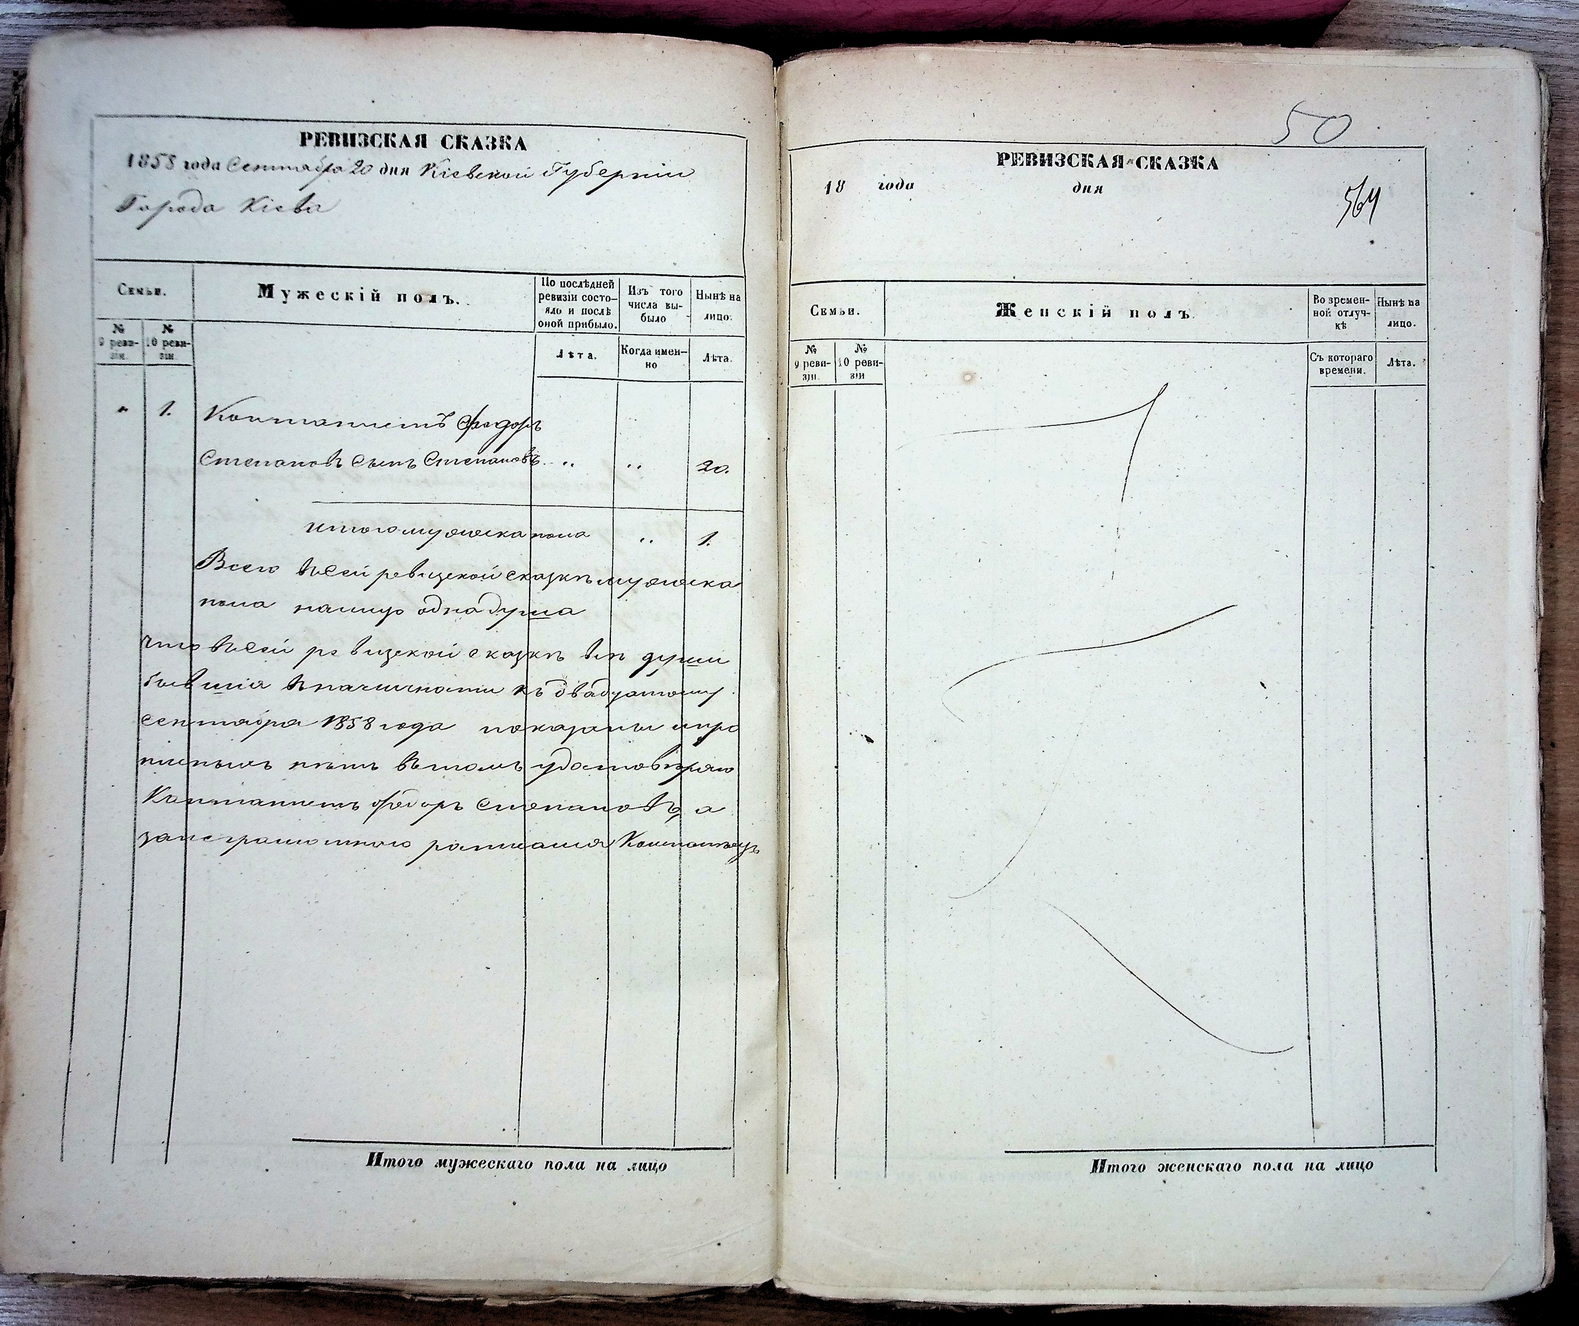 РЕВИЗСКАЯ СКАЗКА
1858 года Сентября 20 дня Кіевской Губерніи
Города Кіева
Семьи.
Мужескій полъ.
По послѣдней ревизіи состо-
яло и послѣ
оной прибыло.
Изъ того
числа вы-
было
Нынѣ на
лицо.
№
9 реви-
зіи.
№
10 реви-
зіи
Лѣта.
Когда имен-
но
Лѣта.
„ 1. Кантонистъ Федоръ
Степановъ сынъ Степановъ „ „ 20.
Итого мужеска пола „ 1.
Всего въ сей ревизской сказкѣ мужеска
пола налицо одна душа
Что въ сей ревизской сказкѣ всѣ души
бывшія въ наличности къ двадцатому
сентября 1858 года показаны и про
писныхъ нѣтъ въ томъ удостовѣряю
Кантонистъ Федоръ Степановъ, а
за неграмотного росписался
Итого мужескаго пола на лицо
50
РЕВИЗСКАЯ СКАЗКА
18 года дня
564
Семьи.
Женскій полъ.
Во времен-
ной отлуч-
кѣ
Нынѣ на
лицо.
№
9 реви-
зіи.
№
10 реви-
зіи
Съ котораго
времени.
Лѣта.
Итого женскаго пола на лицо